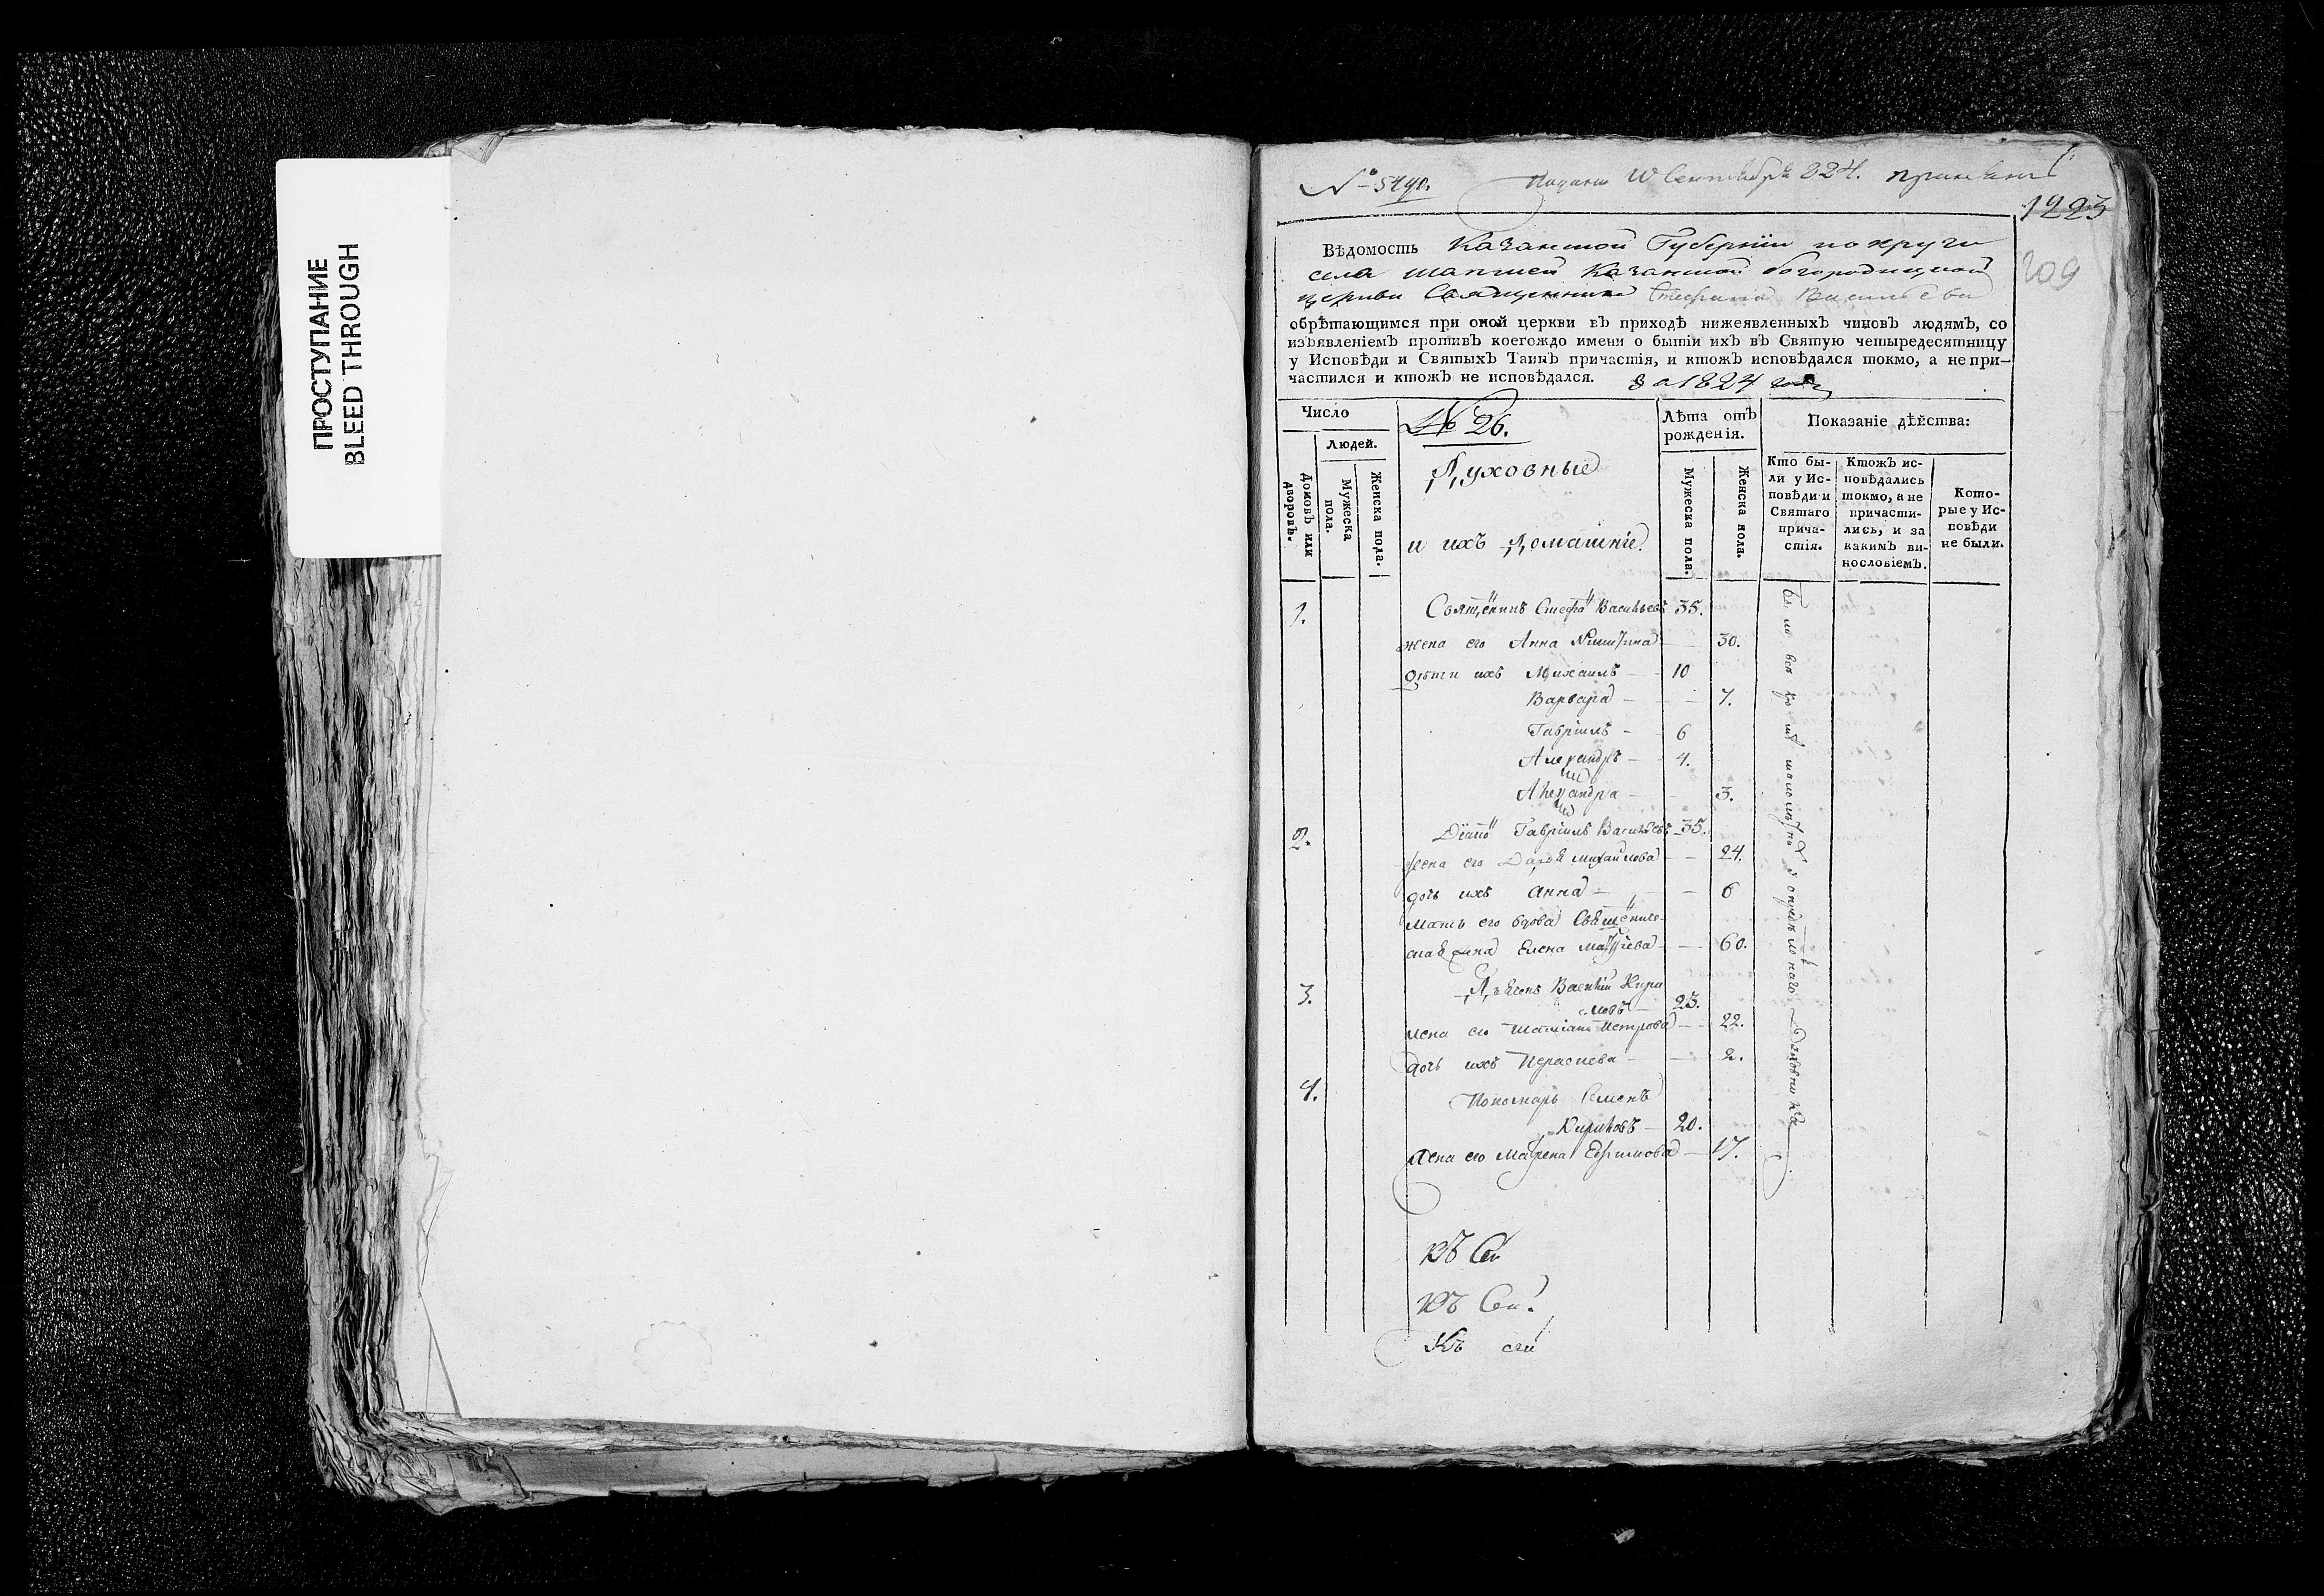 ПРОСТУПАНИЕ
BLEED THROUGH
№ 5490. Сентября 824.
1223
209
Вѣдомость Казанской Губерніи по округи
села Казанской богородицкой
церкви Священника Стефана Васильева
обрѣтающимся при оной церкви въ приходѣ нижеявленныхъ чиновъ людямъ, со
изъявленіемъ противъ коегождо имени о бытіи ихъ въ Святую четыредесятницу
у Исповѣди и Святыхъ Таинъ причастія, и ктожъ исповѣдался токмо, а не при-
частился и ктожъ не исповѣдался. за 1824 годъ
Число
Людей.
Домовъ или дворовъ.
Мужеска пола.
Женска пола.
№ 26.
Духовные
и ихъ Домашніе.
Лѣта отъ рожденія.
Мужеска пола.
Женска пола.
Показаніе дѣйства:
Кто бы-
ли у Ис-
повѣди и
Святаго
прича-
стія.
Ктожъ ис-
повѣдались
токмо, а не
причасти-
лись, и за
какимъ ви-
нословіемъ.
Кото-
рые у Ис-
повѣди
не были.
1. Священникъ Стефанъ Васильевъ 35.
жена его Анна 30.
дѣти ихъ Михаилъ 10
Варвара 7.
Гавріилъ 6
Александръ 4.
Александра 3.
2. Гавріилъ Васильевъ 35.
жена его Дарья Михайлова 24.
дочь ихъ Анна 6
мать его вдова
жена Елена 60.
3. Дьячекъ Василій Кири
ловъ 23.
жена его Татіана Петрова 22.
дочь ихъ 2.
4. Пономарь Семенъ
Кириловъ 20.
жена его Ефимова 17.
Къ сей
Къ Сей
Къ сей